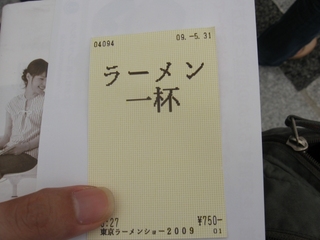 04094 09.-5.31
ラーメン
一杯
:27 ¥750-
東京ラーメンショー2009 01